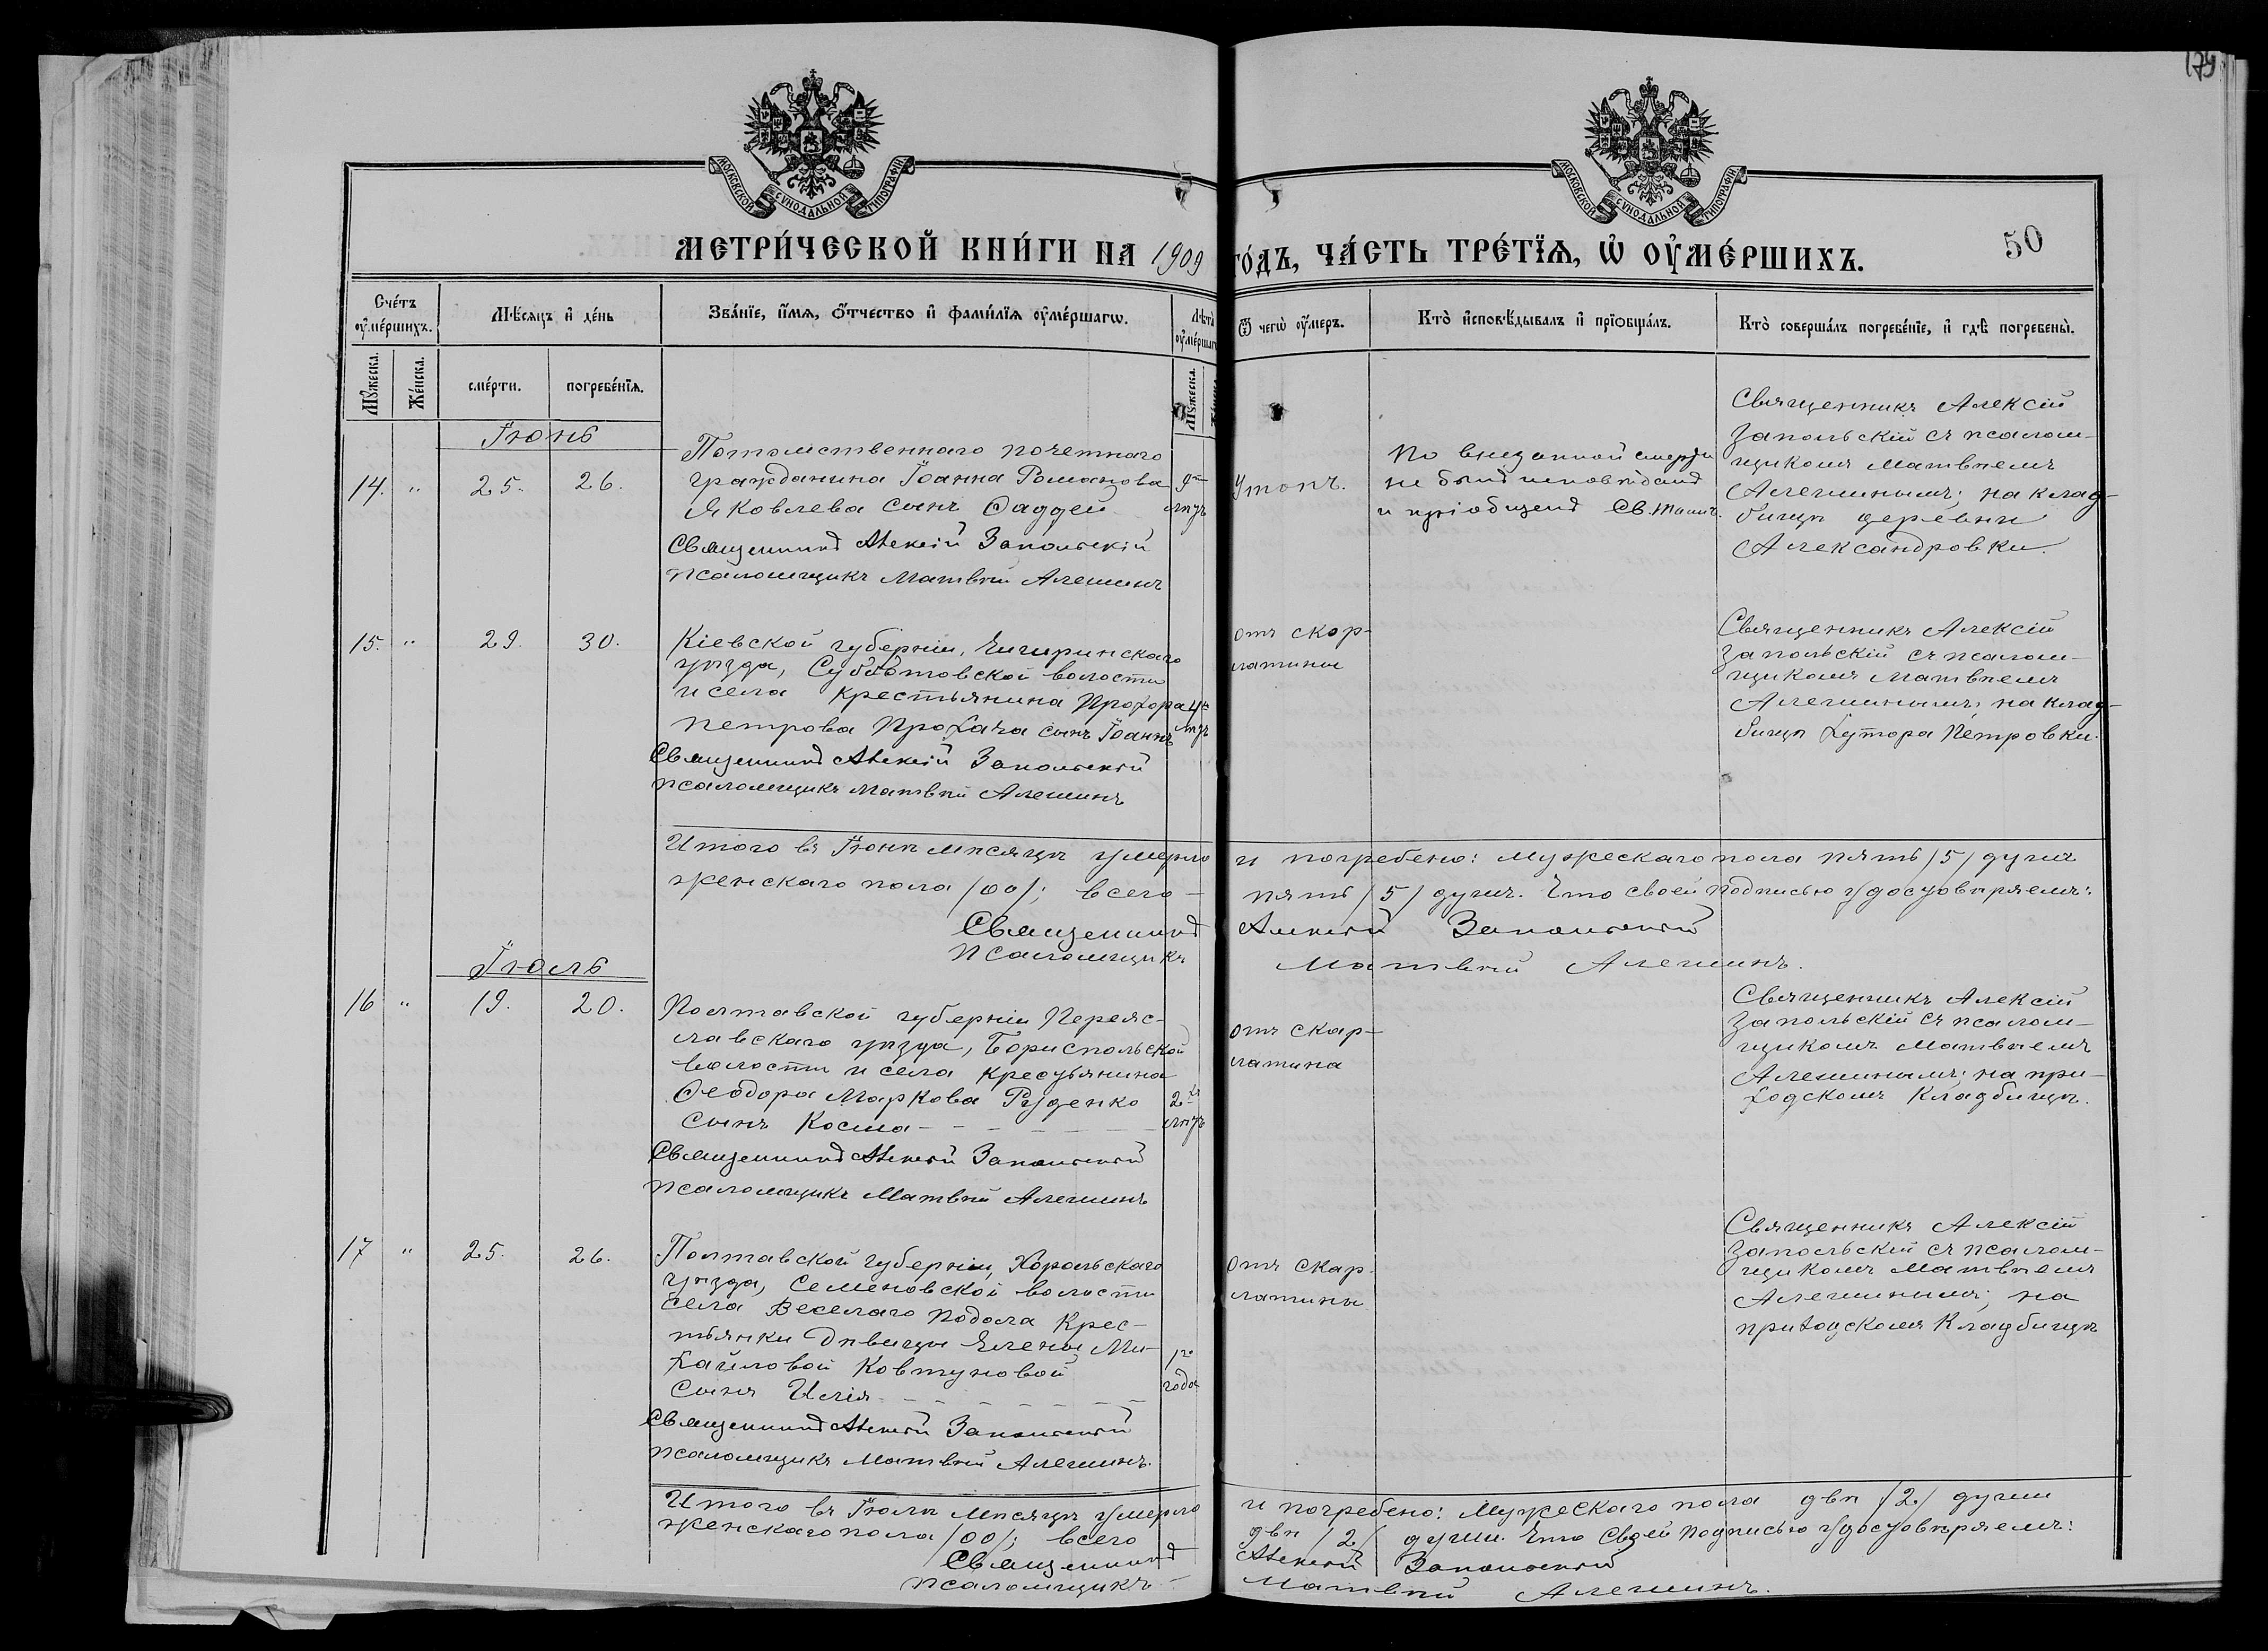 179
МОСКОВСКОЙ СУНОДАЛЬНОЙ ТИПОГРАФІИ
МОСКОВСКОЙ СУНОДАЛЬНОЙ ТИПОГРАФІИ
МЕТРИ́ЧЕСКОЙ КНИ́ГИ НА 1909 ГО́ДЪ, ЧА́СТЬ ТРЕ́ТЇѦ, Ѡ҆ ОУ҆МЕ́РШИХЪ.
50
Сче́тъ оу҆ме́ршихъ.
Мѣ́сяцъ и҆ де́нь
Зва́нїе, и҆́мѧ, ѻ҆́тчество и҆ фами́лїѧ оу҆ме́ршагѡ.
Лѣта̀ оу҆ме́ршаг
Ѿ чегѡ̀ оу҆́меръ.
Кто̀ и҆сповѣ́дывалъ и҆ прїѡбща́лъ.
Кто̀ соверша́лъ погребе́нїе, и҆ гдѣ̀ погребены̀.
Мꙋ́жеска.
Же́нска.
сме́рти.
погребе́нїѧ.
Мꙋ́жеска.
Іюнь
14. " 25. 26.
Потомственнаго почетнаго
гражданина Іоанна Романова
Яковлева сынъ Фаддей
9 лѣтъ
Священникъ Алексій Запольскій
псаломщикъ Матвѣй Алешинъ
Утонъ.
По внезапной смерти
не былъ исповѣданъ
и пріобщенъ Св. Таинъ.
Священникъ Алексій
Запольскій съ псалом-
щикомъ Матвѣемъ
Алешинымъ; на клад-
бищѣ деревни
Александровки.
15. " 29. 30.
Кіевской губерніи, Чигиринскаго
уѣзда, Субботовской волости
и села крестьянина Прохора
Петрова Прохача сынъ Іоаннъ
4 лѣтъ
Священникъ Алексій Запольскій
псаломщикъ Матвѣй Алешинъ
отъ скор-
латины
Священникъ Алексій
Запольскій съ псалом-
щикомъ Матвѣемъ
Алешинымъ; на клад-
бищѣ хутора Петровки.
Итого въ Іюнѣ мѣсяцѣ умерло и погребено: мужескаго пола пять /5/ душъ
женскаго пола /00/; всего – пять /5/ душъ. Что своей подписью удостовѣряемъ:
Священникъ Алексій Запольскій
Псаломщикъ Матвѣй Алешинъ.
Іюль
16 " 19. 20.
Полтавской губерніи Переяс-
лавскаго уѣзда, Бориспольской
волости и села крестьянина
Феодора Маркова Руденко
сынъ Косма
2хъ лѣтъ
Священникъ Алексій Запольскій
псаломщикъ Матвѣй Алешинъ
отъ скар-
латина
Священникъ Алексій
Запольскій съ псалом-
щикомъ Матвѣемъ
Алешинымъ; на при-
ходскомъ кладбищѣ.
17 " 25. 26.
Полтавской губерніи, Хорольскаго
уѣзда, Семеновской волости
села Веселаго Подола крес-
тьянки дѣвицы Елены Ми-
хайловой Ковтуновой
сынъ Илія
1го года
Священникъ Алексій Запольскій
псаломщикъ Матвѣй Алешинъ.
отъ скар-
латины
Священникъ Алексій
Запольскій съ псалом-
щикомъ Матвѣемъ
Алешинымъ; на
приходскомъ кладбищѣ
Итого въ Іюлѣ мѣсяцѣ умерло и погребено: мужескаго пола двѣ /2/ души
женскаго пола /00/; всего двѣ /2/ души. Что своей подписью удостовѣряемъ:
Священникъ Алексій Запольскій
псаломщикъ – Матвѣй Алешинъ.